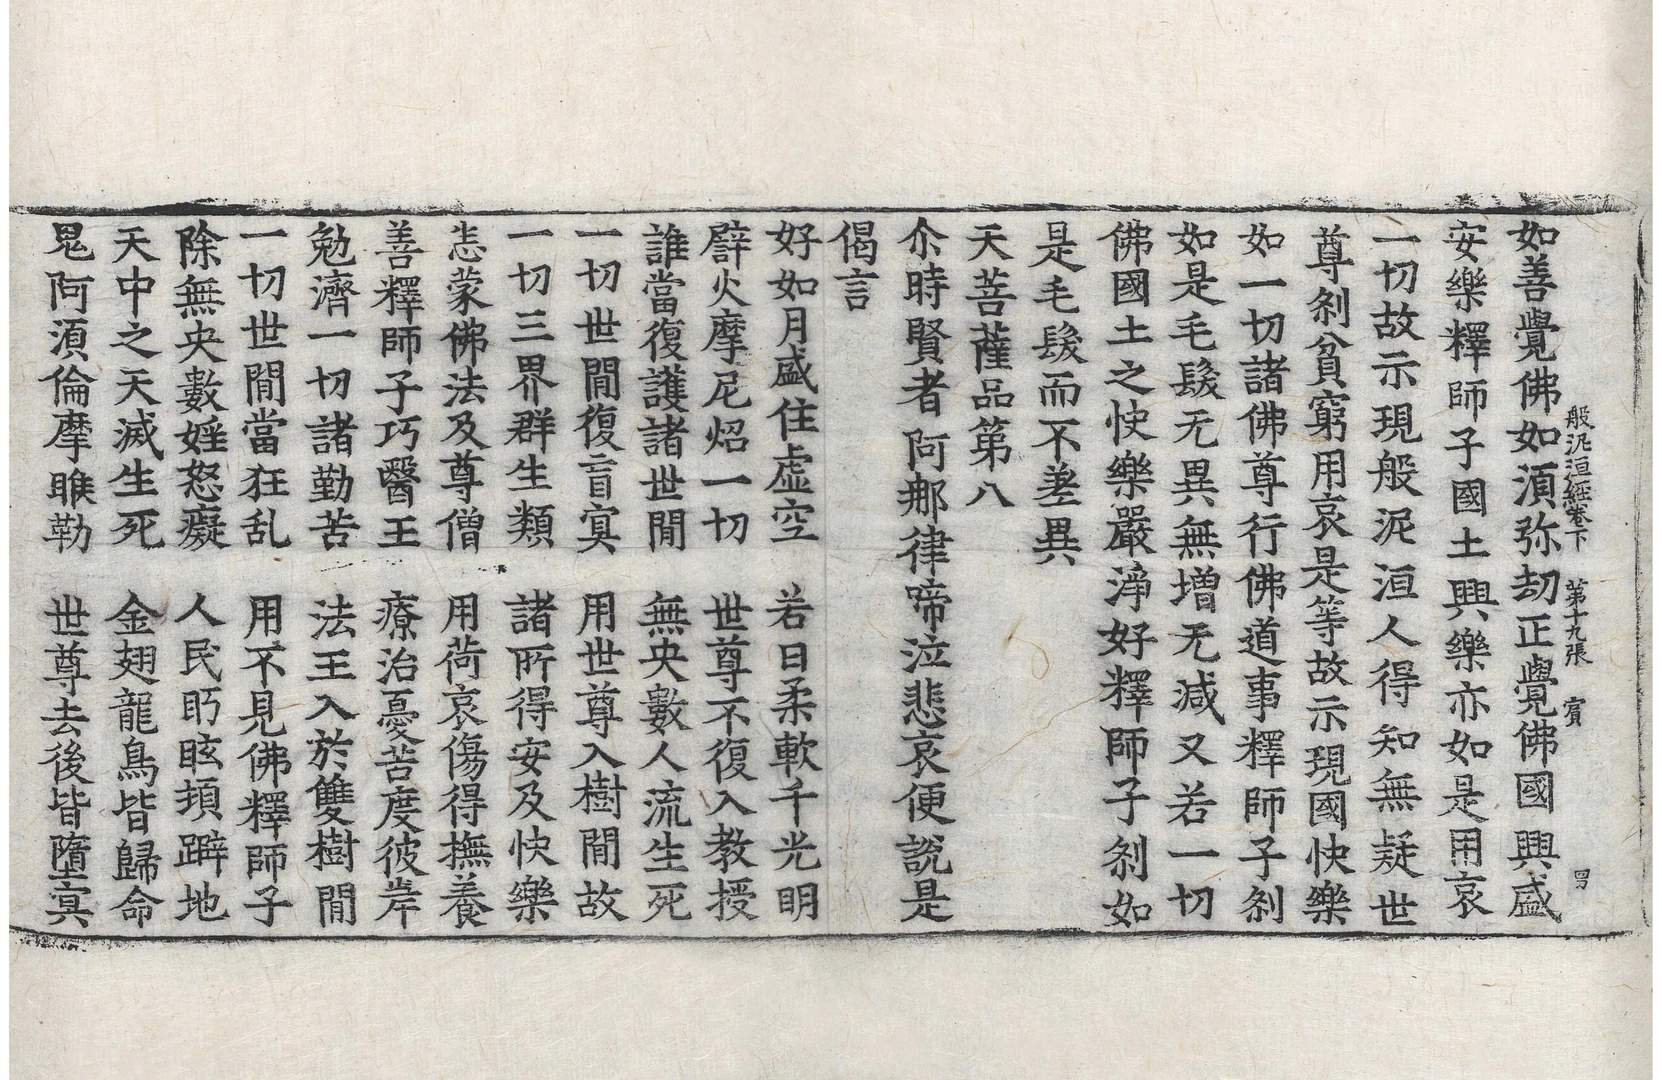 般泥洹經卷下　第十九張　賓
如善覺佛如湏弥刧正覺佛國興盛
安樂釋師子國土興樂亦如是用哀
一切故示現般泥洹人得知無疑世
尊剎貧窮用哀是等故示現國快樂
如一切諸佛尊行佛道事釋師子剎
如是毛髮无異無增无減又若一切
佛國土之快樂嚴淨好釋師子剎如
是毛髮而不差異
天菩薩品第八
尒時賢者阿那律啼泣悲哀便說是
偈言
好如月盛住虛空　若日柔軟千光明
譬火摩尼炤一切　世尊不復入教授
誰當復護諸世間　無央數人流生死
一切世間復盲冥　用世尊入樹間故
一切三界群生類　諸所得安及快樂
恙蒙佛法及尊僧　用荷哀傷得撫養
善釋師子巧醫王　療治憂苦度彼岸
勉濟一切諸勤苦　法王入於雙樹間
一切世間當狂乱　用不見佛釋師子
除無央數婬怒癡　人民眄眩頊躃地
天中之天滅生死　金翅龍鳥皆歸命
鬼阿湏倫摩睺勒　世尊去後皆墮冥